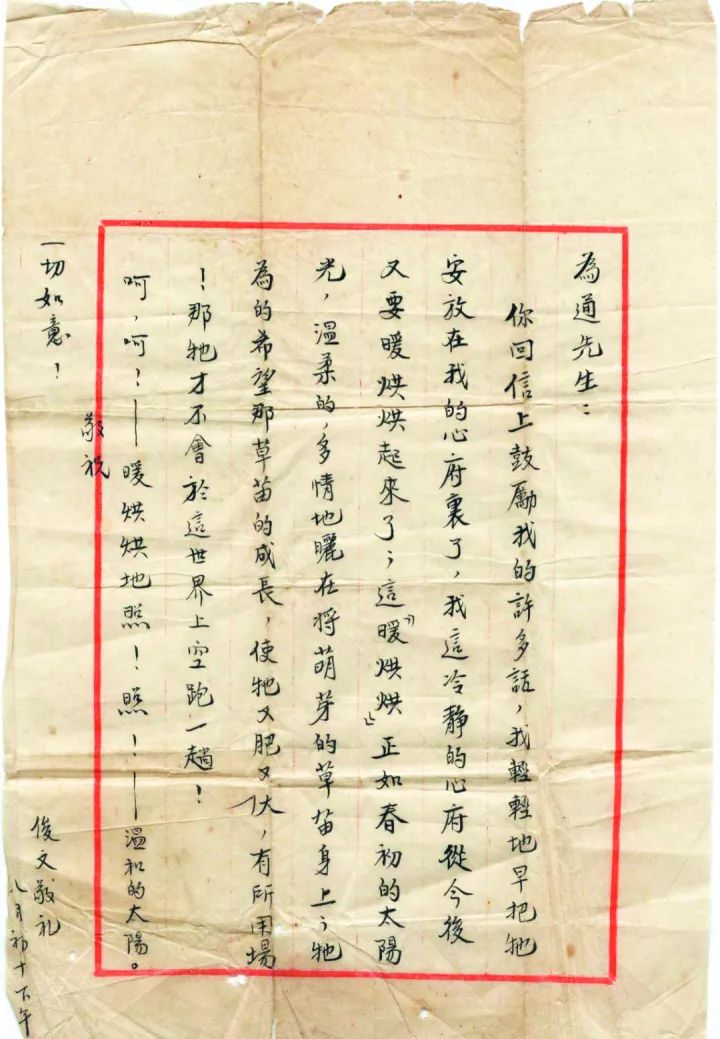 為通先生：
你回信上鼓勵我的許多話，我輕輕地早把牠
安放在我的心府裏了，我這冷靜的心府從今後
又要暖烘烘起來了；這“暖烘烘”正如春初的太陽
光，溫柔的，多情地曬在将萌芽的草苗身上；牠
為的希望那草苗的成長，使牠又肥又大，有所用場
！那牠才不會於這世界上空跑一趟！
呵，呵！——暖烘烘地照！照！——溫和的太陽。
敬祝
一切如意！
俊文敬礼
八月初十下午